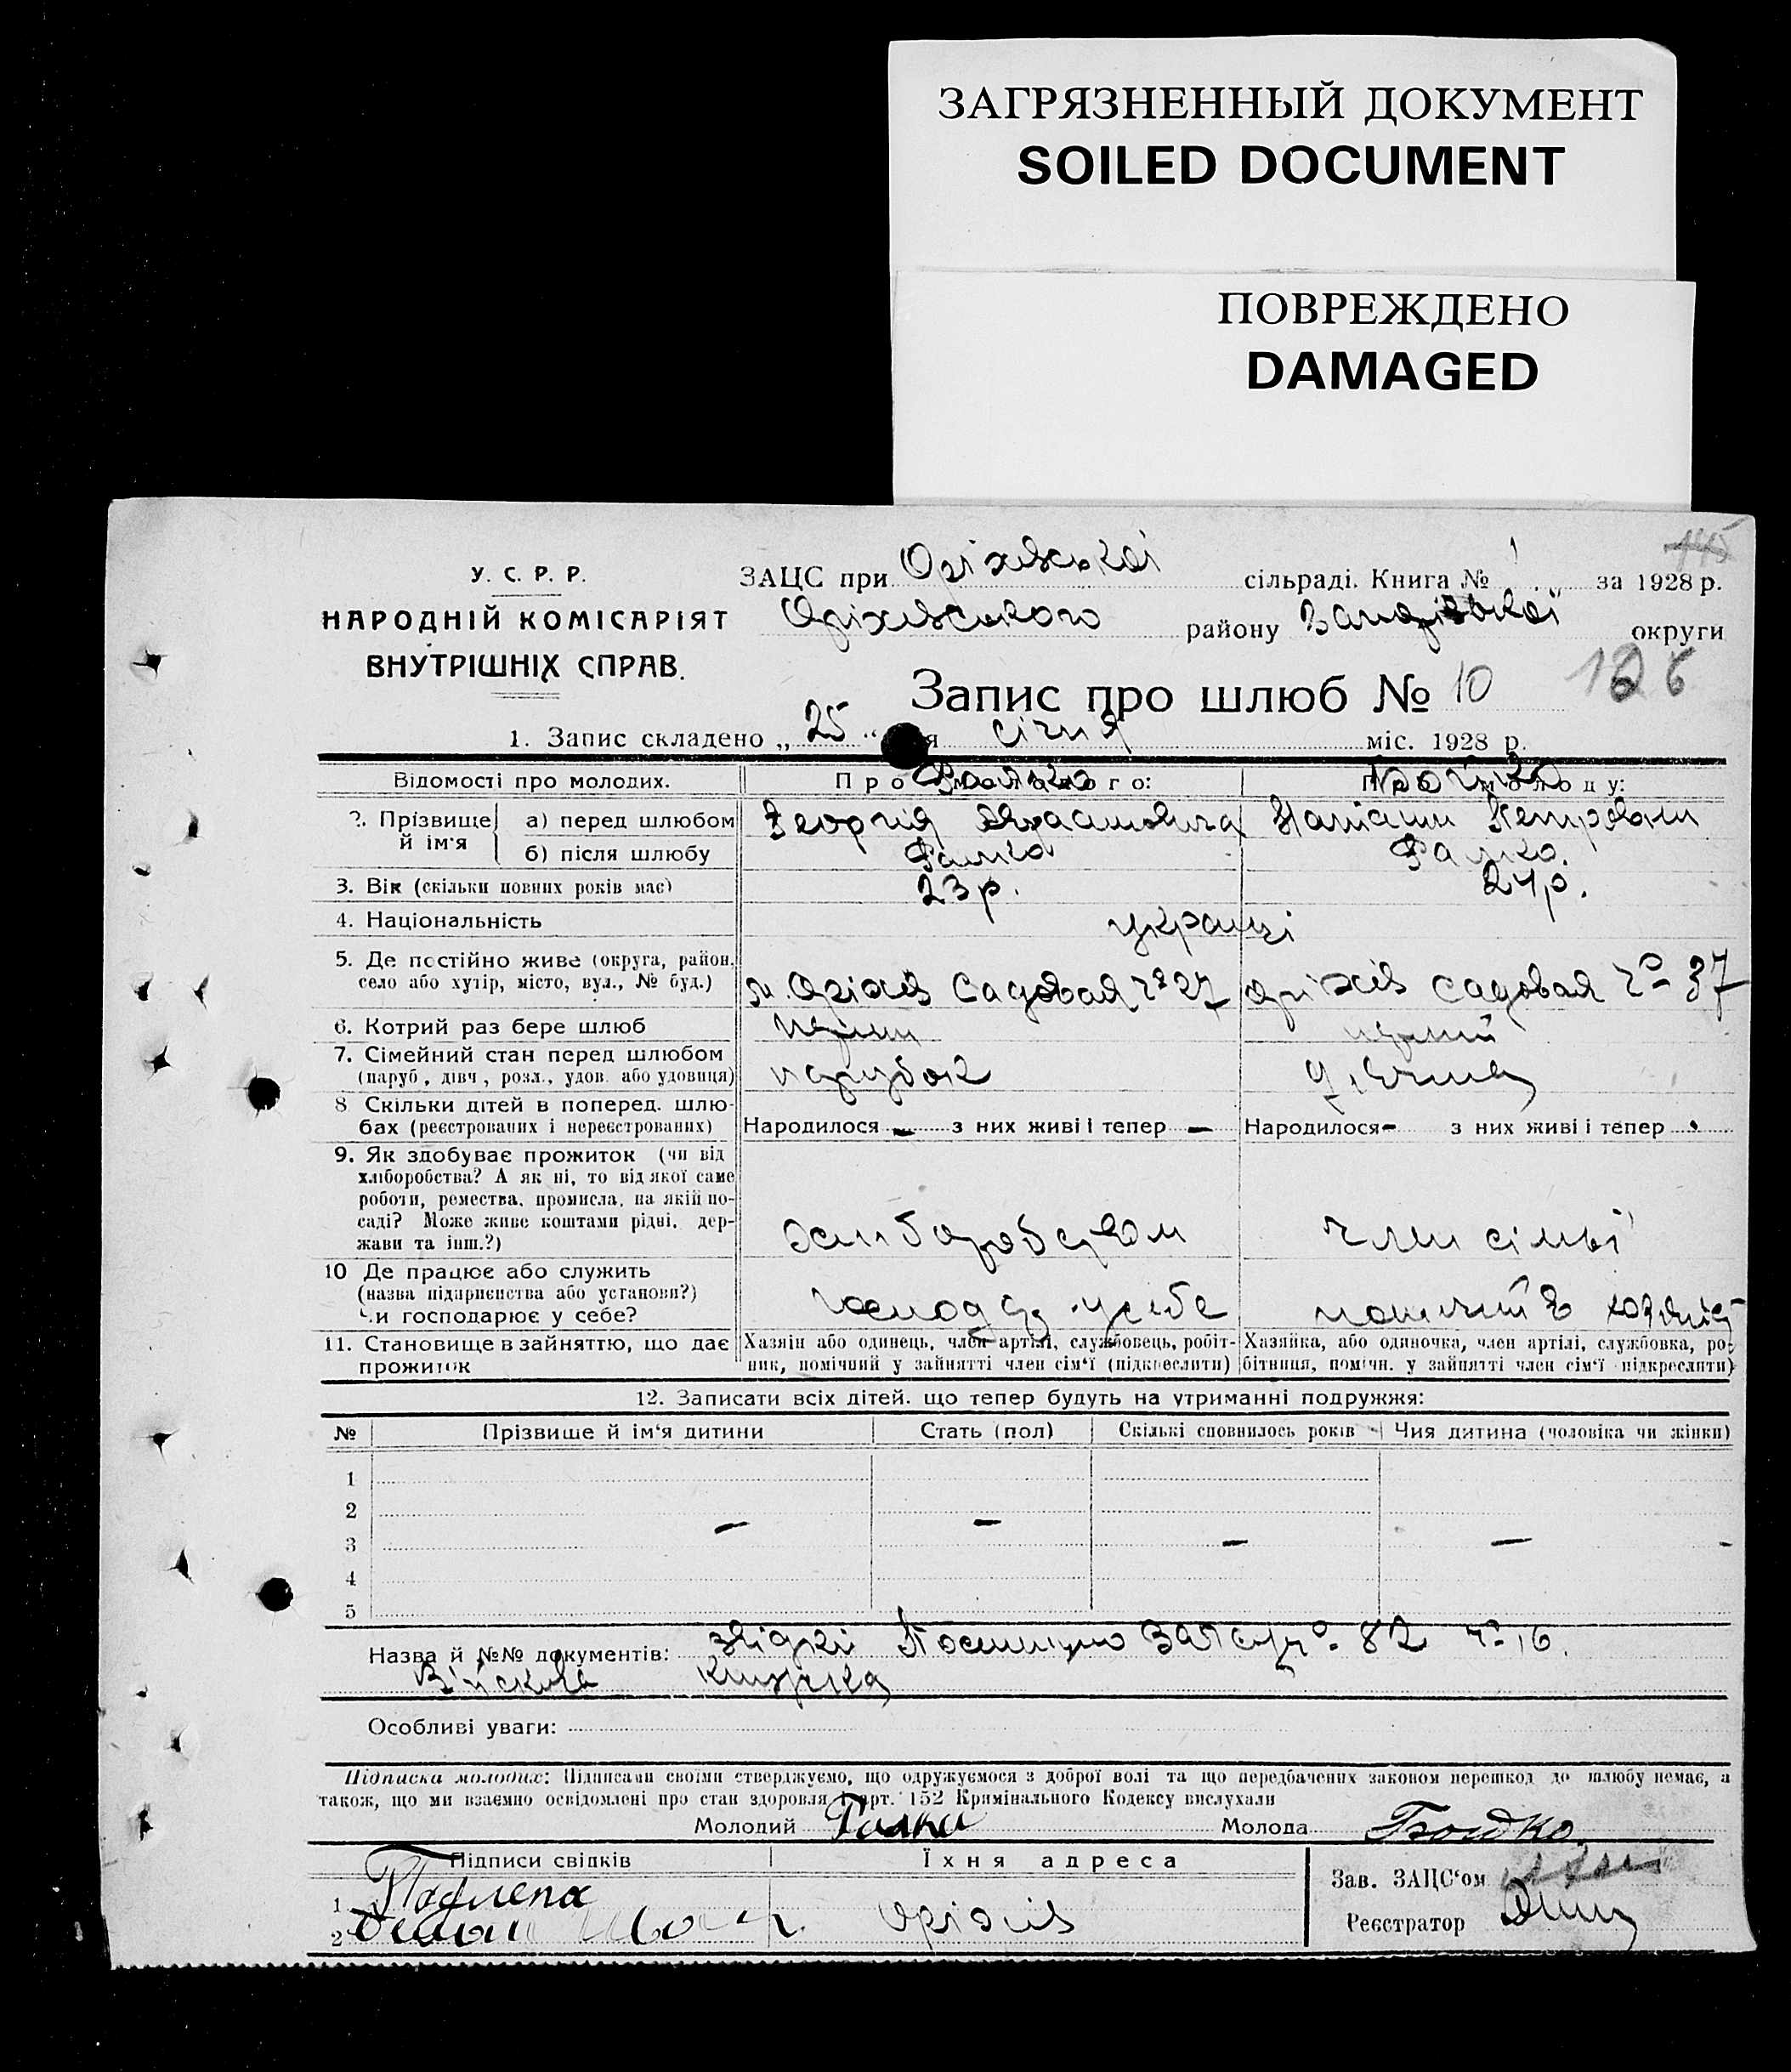 ЗАГРЯЗНЕННЫЙ ДОКУМЕНТ
SOILED DOCUMENT
ПОВРЕЖДЕНО
DAMAGED
У. С. Р. Р.
НАРОДНІЙ КОМІСАРІЯТ
ВНУТРІШНІХ СПРАВ.
115
ЗАЦС при Оріхівської сільраді. Книга № 1 за 1928 р.
Оріхівського району Запорізької округи
126
Запис про шлюб № 10
1. Запис складено „ 25 “ я січня міс. 1928 р.
Відомості про молодих. Про го: моло ду:
2. Прізвище й ім'я
а) перед шлюбом Георгія Натали Петровни
б) після шлюбу Фалко Фалко.
3. Вік (скільки повних років має) 23 р. 24 р.
4. Національність українці
5. Де постійно живе (округа, район,
село або хутір, місто, вул., № буд.) м. Оріхів Садовая № 27 Оріхів Садовая № 37
6. Котрий раз бере шлюб перший
7. Сімейний стан перед шлюбом
(паруб., дівч., розл., удов. або удовиця) парубок дівчина
8 Скільки дітей в поперед. шлю-
бах (реєстрованих і нереєстрованих) Народилося – з них живі і тепер – Народилося - з них живі і тепер -
9. Як здобуває прожиток (чи від
хліборобства? А як ні, то від якої саме
роботи, ремества, промисла, на якій по-
саді? Може живе коштами рідні, дер-
жави та інш.?) хліборобством член сімьї
10 Де працює або служить
(назва підприємства або установи?)
Чи господарює у себе? у себе
11. Становище в зайняттю, що дає
прожиток
Хазяїн або одинець, член артілі, службовець, робіт-
ник, помічний у зайнятті член сім'ї (підкреслити)
Хазяйка, або одиночка, член артілі, службовка, ро-
бітниця, помічн. у зайнятті член сім'ї підкреслити)
12. Записати всіх дітей. що тепер будуть на утриманні подружжя:
№ Прізвище й ім'я дитини Стать (пол) Скількі сповнилось років Чия дитина (чоловіка чи жінки)
1
2 – –
3 – – -
4
5
Назва й №№ документів: № 82 № 16.
Військова книжка
Особливі уваги:
Підписка молодих: Підписами своїми стверджуємо, що одружуємося з доброї волі та що передбачених законом перешкод до шлюбу немає, а
також, що ми взаємно освідомлені про стан здоровля і арт. 152 Кримінального Кодексу вислухали
Молодий Фалко Молода
Підписи свідків Їхня адреса
Зав. ЗАЦС'ом
1
2 Оріхів
Реєстратор